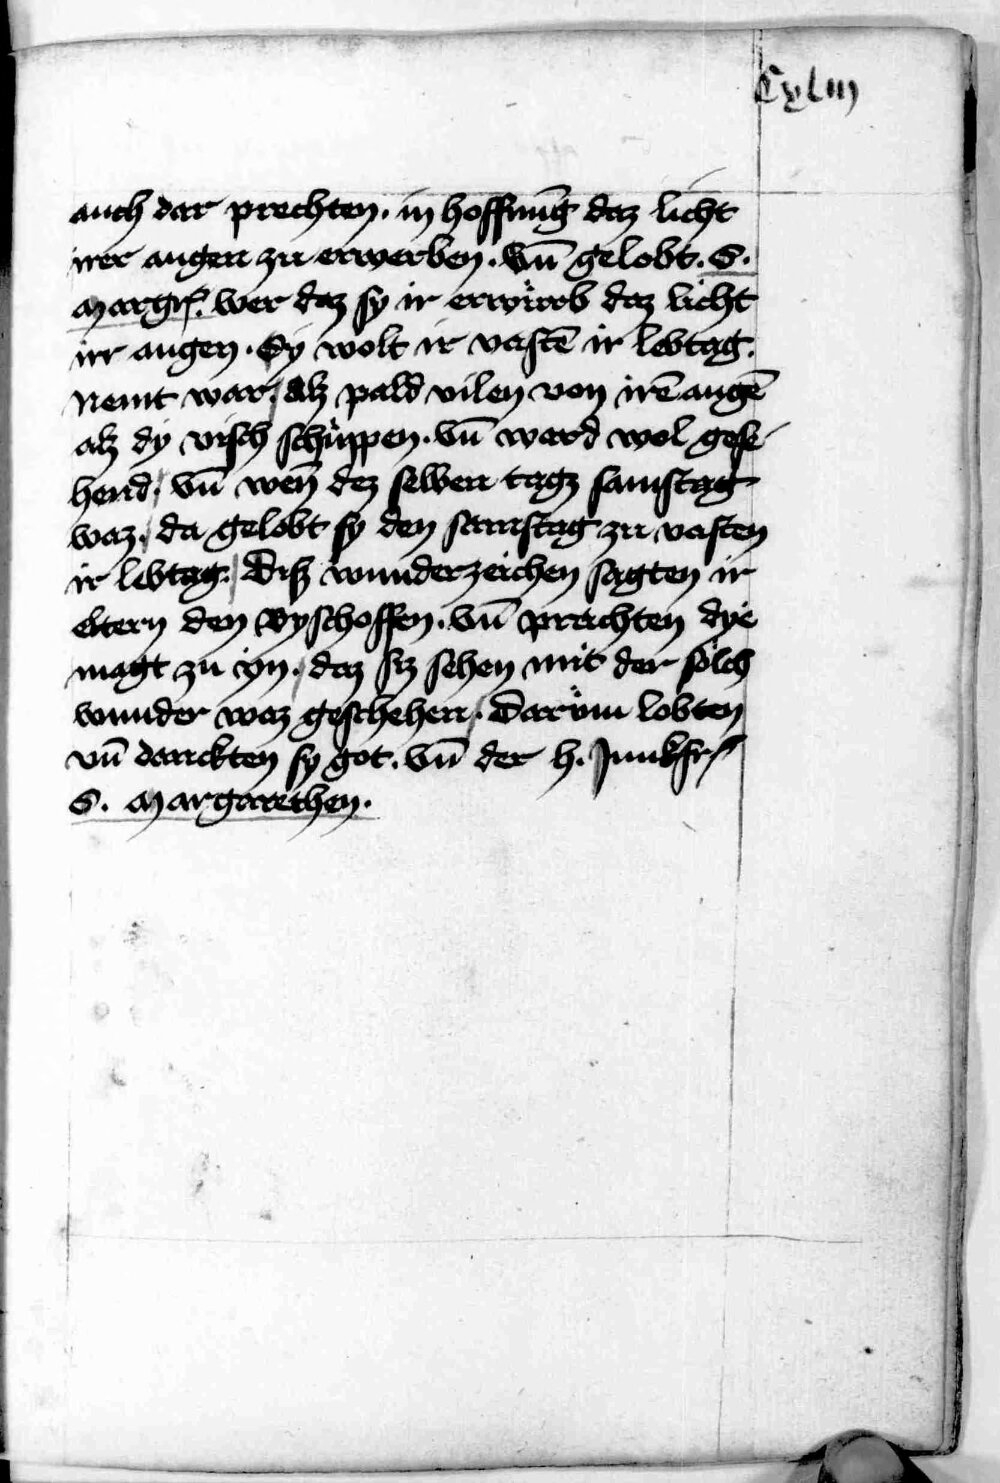 Cxlııȷ
auch dar prechten. in hoffnūg daz licht
irer augen zu erwerben. vn̄ gelobt. S.
Margr̄. wer daz sy ir erwürb daz licht
irr augen. Sy wolt ir vastē ir lebtag.
Nemt war, alz pald vilen von irē augē
alz dy visch schüppen. vn̄ ward wol gese-
hend, vn̄ wen̄ dez selben tagz samstag
waz, da gelobt sy den samstag zu vasten
ir lebtag. Disz wunderzeichen sagten ir
eltern den Byschoffen. vn̄ prachten dye
magt zu yn, daz siz sehen mit der sölch
wunder waz geschehen. Darüm lobten
vn̄ danckten sy got. vn̄ der h. Junkfr
S. Margarethen.